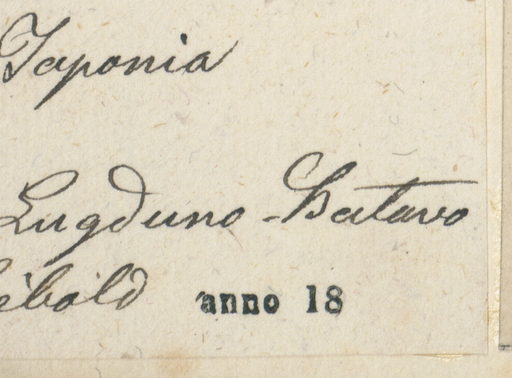 Japonia
Lugduno-Batavo
ebold anno 18